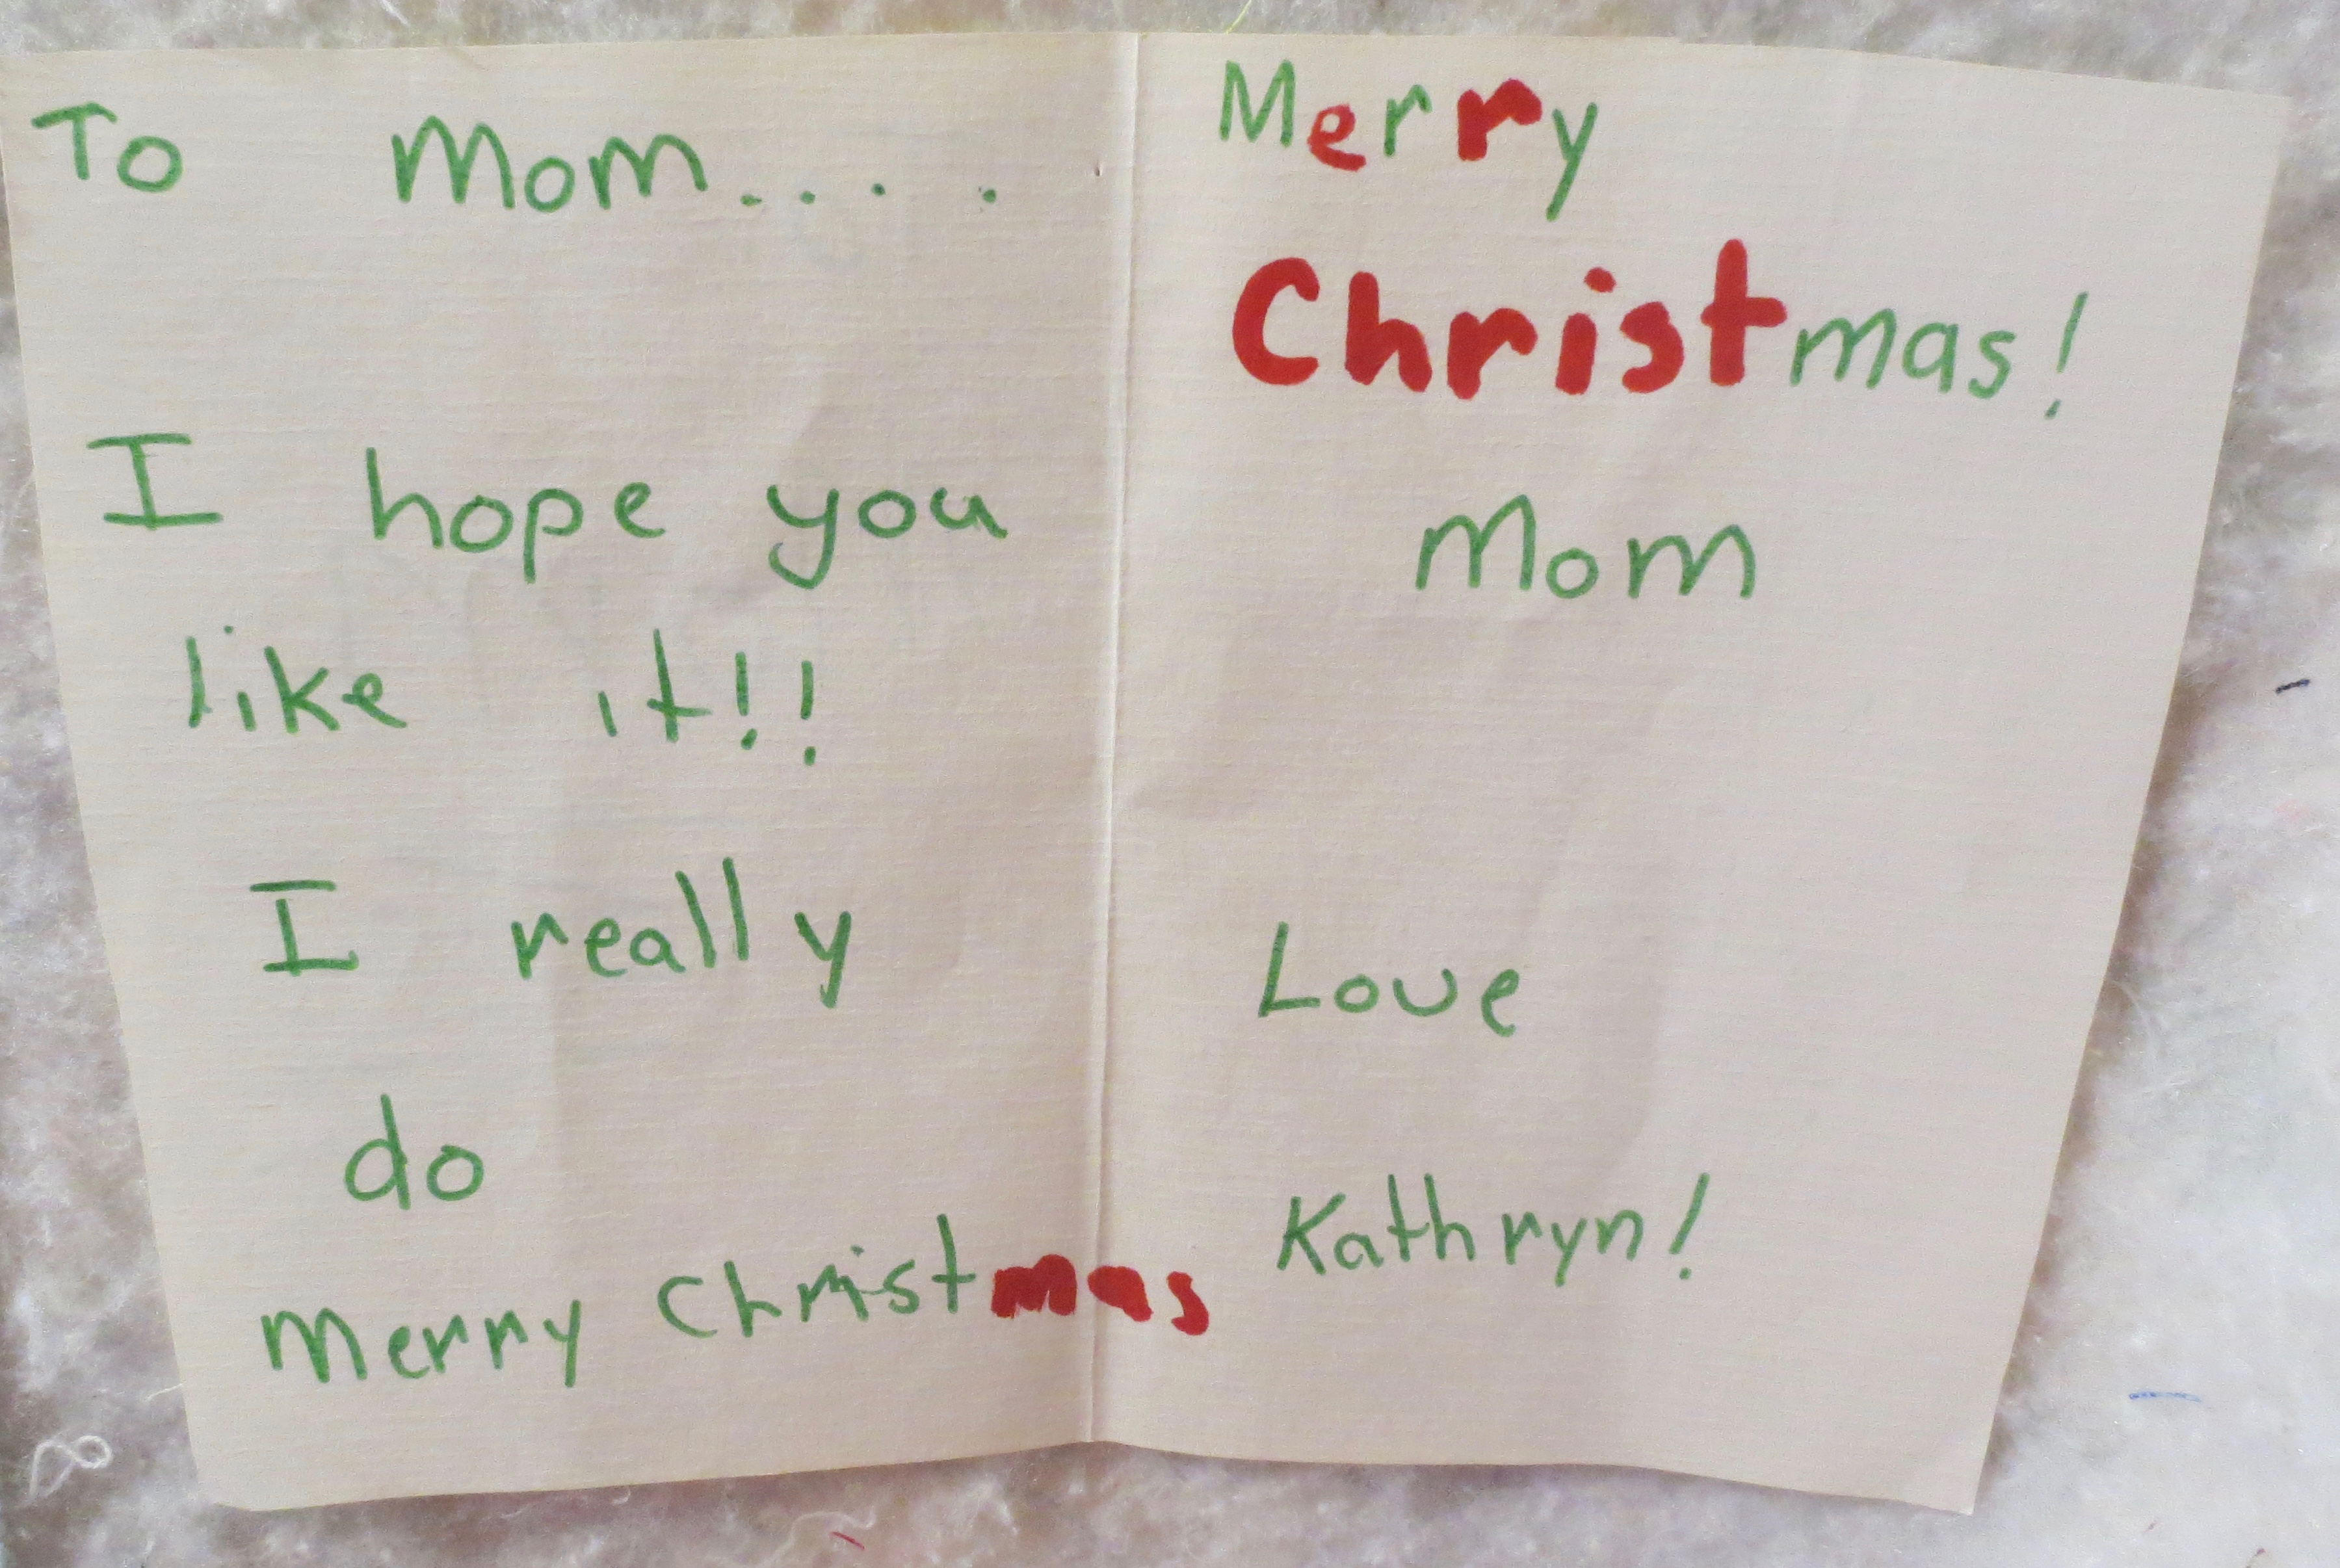 To Mom....
I hope you
like it!!
I really
do
Merry Christmas
Merry
Christmas!
Mom
Love
Kathryn!